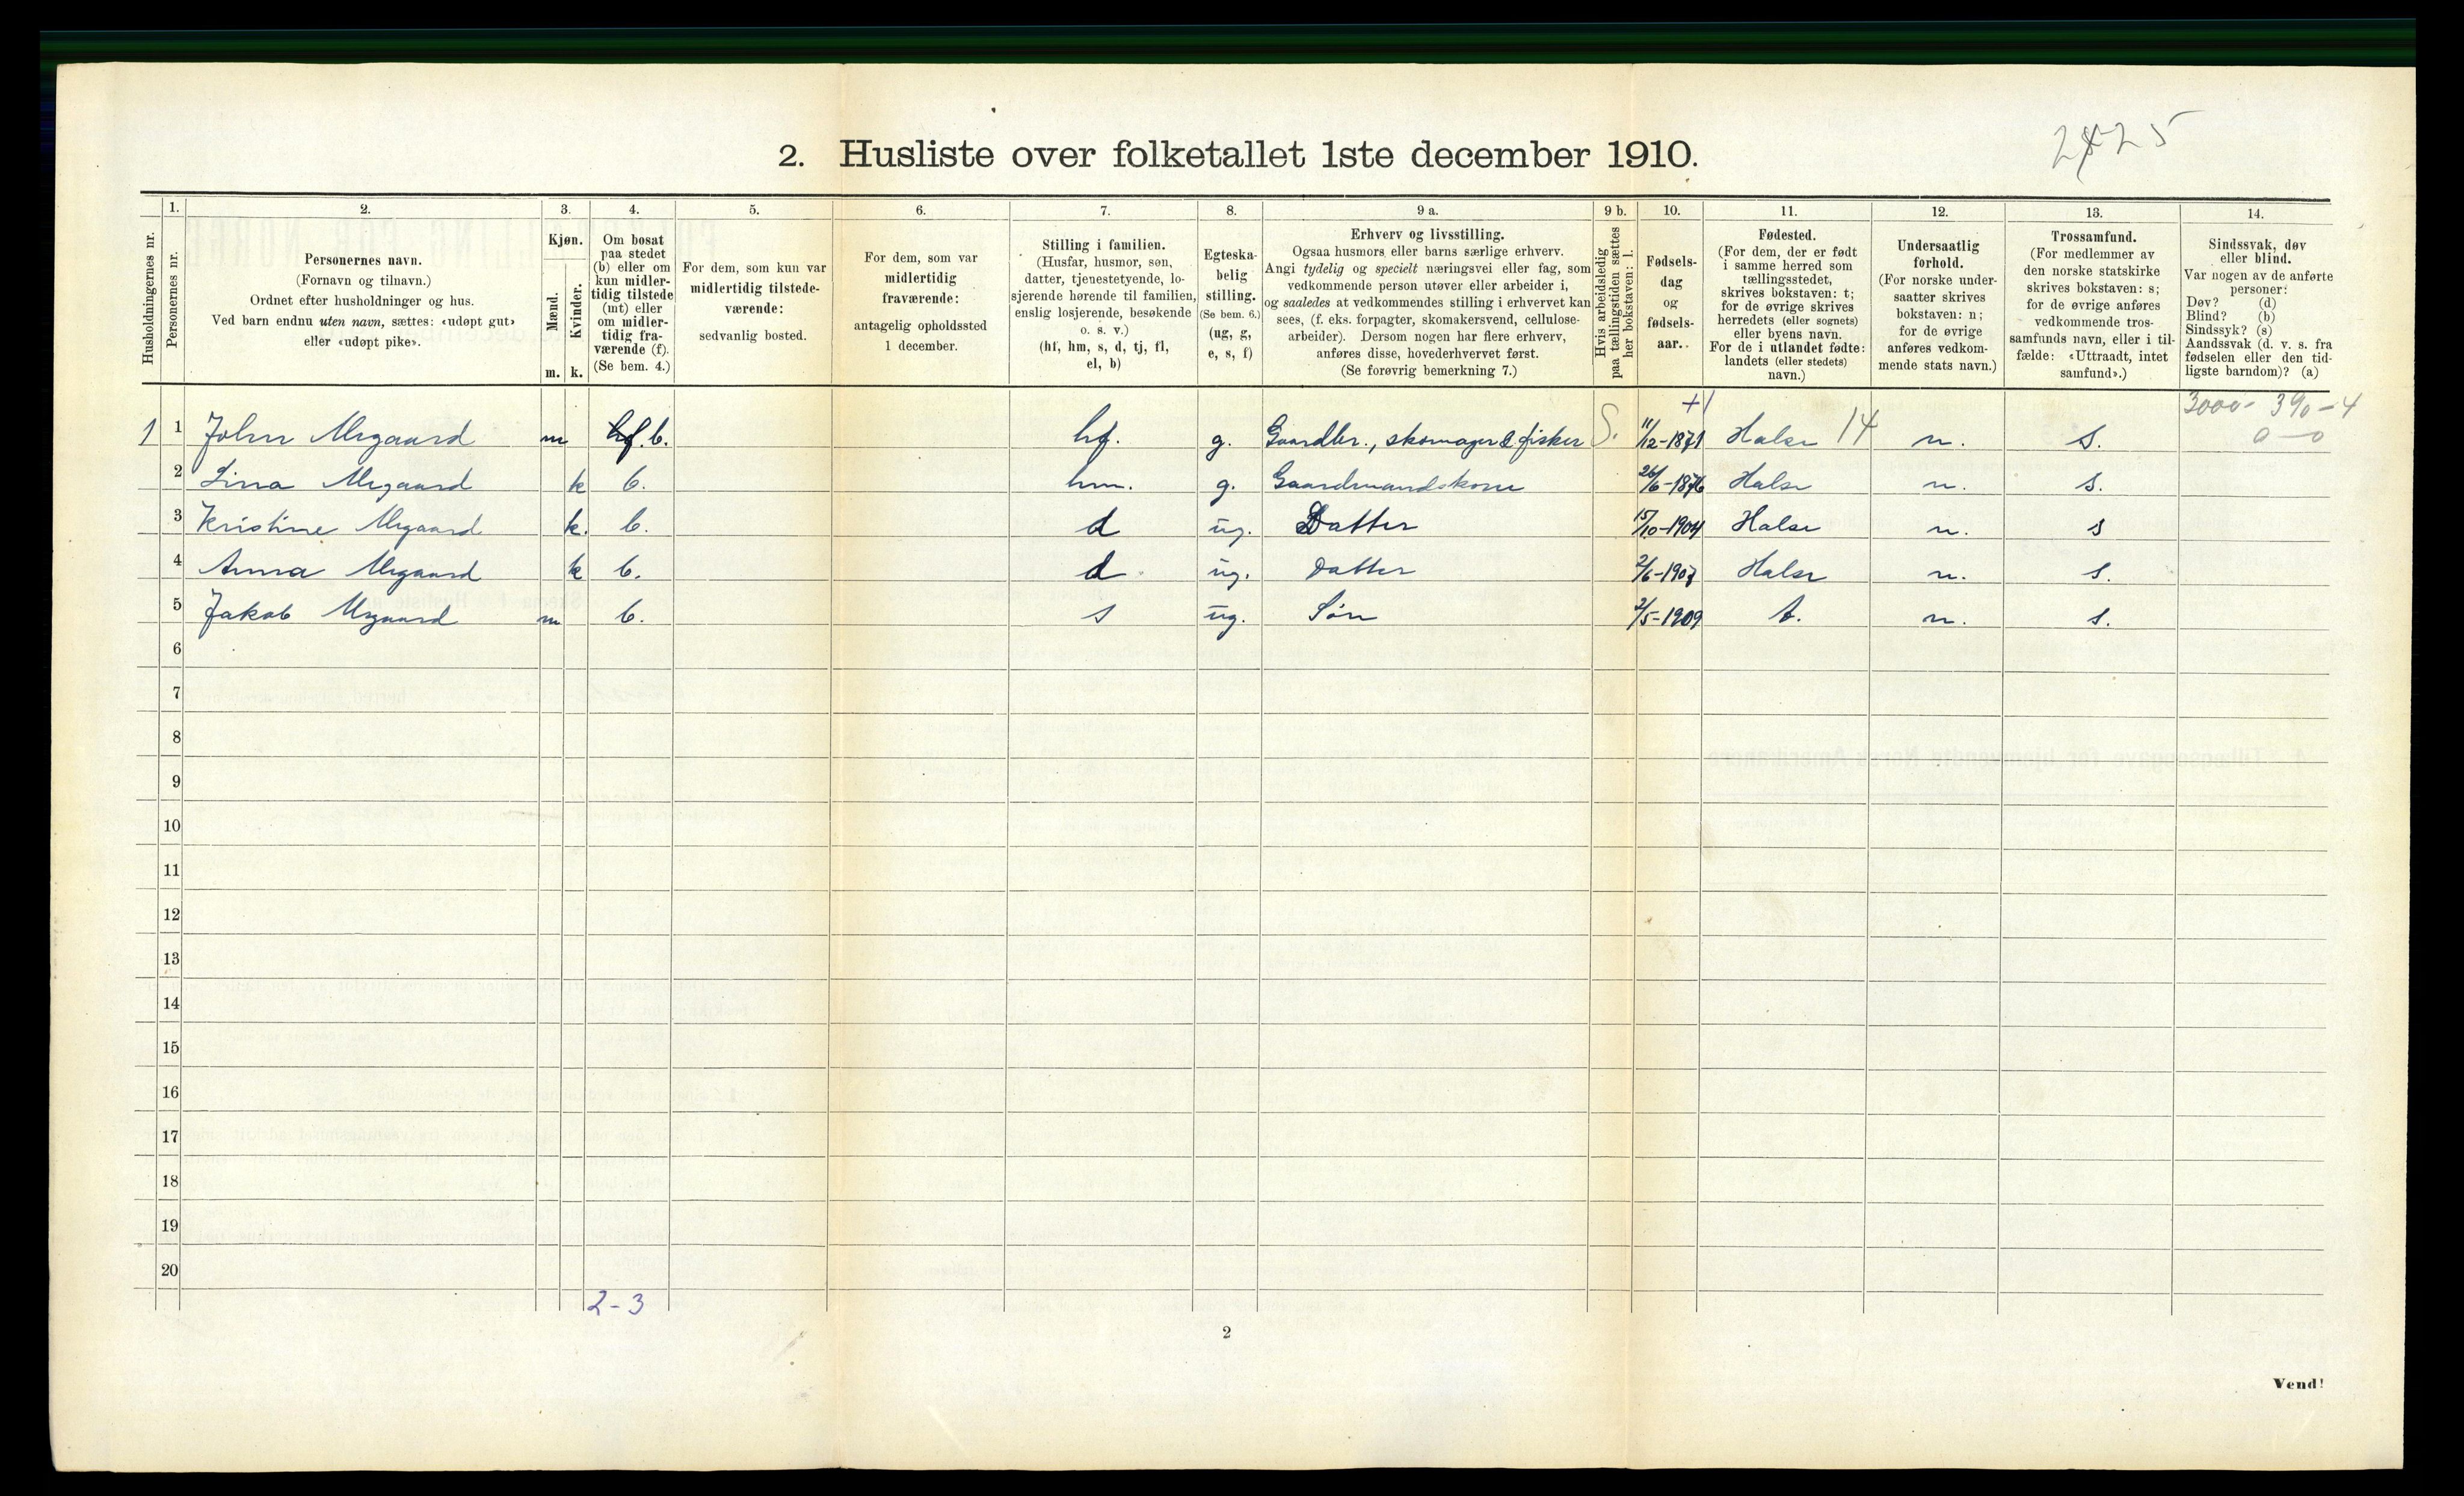 2. Husliste over folketallet 1ste december 1910.
25
Husholdningernes nr.
1. Personernes nr.
2. Personernes navn. (Fornavn og tilnavn.) Ordnet efter husholdninger og hus. Ved barn endnu uten navn, sættes: «udøpt gut» eller «udøpt pike».
3. Kjøn. Mænd. m. Kvinder. k.
4. Om bosat paa stedet (b) eller om kun midlertidig tilstede (mt) eller om midlertidig fraværende (f). (Se bem. 4.)
5. For dem, som kun var midlertidig tilstedeværende: sedvanlig bosted.
6. For dem, som var midlertidig fraværende: antagelig opholdssted 1 december.
7. Stilling i familien. (Husfar, husmor, søn, datter, tjenestetyende, losjerende hørende til familien, enslig losjerende, besøkende o. s. v.) (hf, hm, s, d, tj, fl, el, b)
8. Egteskabelig stilling. (Se bem. 6.) (ug, g, e, s, f)
9 a. Erhverv og livsstilling. Ogsaa husmors eller barns særlige erhverv. Angi tydelig og specielt næringsvei eller fag, som vedkommende person utøver eller arbeider i, og saaledes at vedkommendes stilling i erhvervet kan sees, (f. eks. forpagter, skomakersvend, cellulosearbeider). Dersom nogen har flere erhverv, anføres disse, hovederhvervet først. (Se forøvrig bemerkning 7.)
9 b. Hvis arbeidsledig paa tællingstiden sættes her bokstaven: l.
10. Fødselsdag og fødselsaar.
11. Fødested. (For dem, der er født i samme herred som tællingsstedet, skrives bokstaven: t; for de øvrige skrives herredets (eller sognets) eller byens navn. For de i utlandet fødte: landets (eller stedets) navn.)
12. Undersaatlig forhold. (For norske undersaatter skrives bokstaven: n; for de øvrige anføres vedkommende stats navn.)
13. Trossamfund. (For medlemmer av den norske statskirke skrives bokstaven: s; for de øvrige anføres vedkommende trossamfunds navn, eller i tilfælde: «Uttraadt, intet samfund».)
14. Sindssvak, døv eller blind. Var nogen av de anførte personer: Døv? (d) Blind? (b) Sindssyk? (s) Aandssvak (d. v. s. fra fødselen eller den tidligste barndom)? (a)
+1 3000- 390-4
1 1 John m b. hf. g. Gaardbr., skomager & fisker S. 11/12-1871 Halse 14 n. s. 0-0
2 Lina k b. hm. g. Gaardmandskone 26/6-1876 Halse n. s.
3 Kristine k. b. d ug. Datter 15/10-1904 Halse n. s
4 Anna k b. d ug. Datter 2/6-1907 Halse n. s.
5 Jakob m b. s ug. Søn 2/5-1909 t. n. s.
6
7
8
9
10
11
12
13
14
15
16
17
18
19
20
2-3
2
Vend!